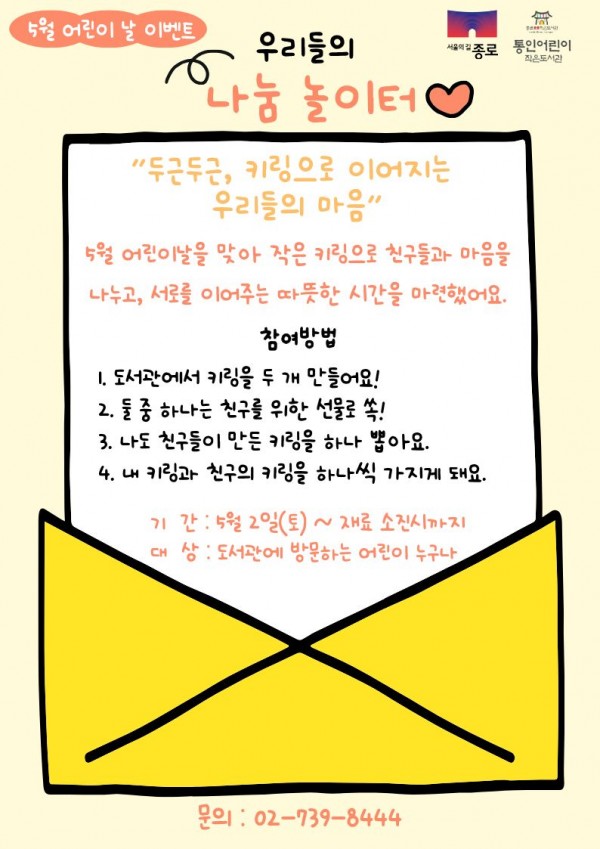 5월 어린이 날 이벤트
서울의 길 종로
통인어린이
작은도서관
우리들의
나눔 놀이터
"두근두근, 키링으로 이어지는
우리들의 마음"
5월 어린이날을 맞아 작은 키링으로 친구들과 마음을
나누고, 서로를 이어주는 따뜻한 시간을 마련했어요.
참여방법
1. 도서관에서 키링을 두 개 만들어요!
2. 둘 중 하나는 친구를 위한 선물로 쏙!
3. 나도 친구들이 만든 키링을 하나 뽑아요.
4. 내 키링과 친구의 키링을 하나씩 가지게 돼요.
기 간 : 5월 2일(토) ~ 재료 소진시까지
대 상 : 도서관에 방문하는 어린이 누구나
문의 : 02-739-8444